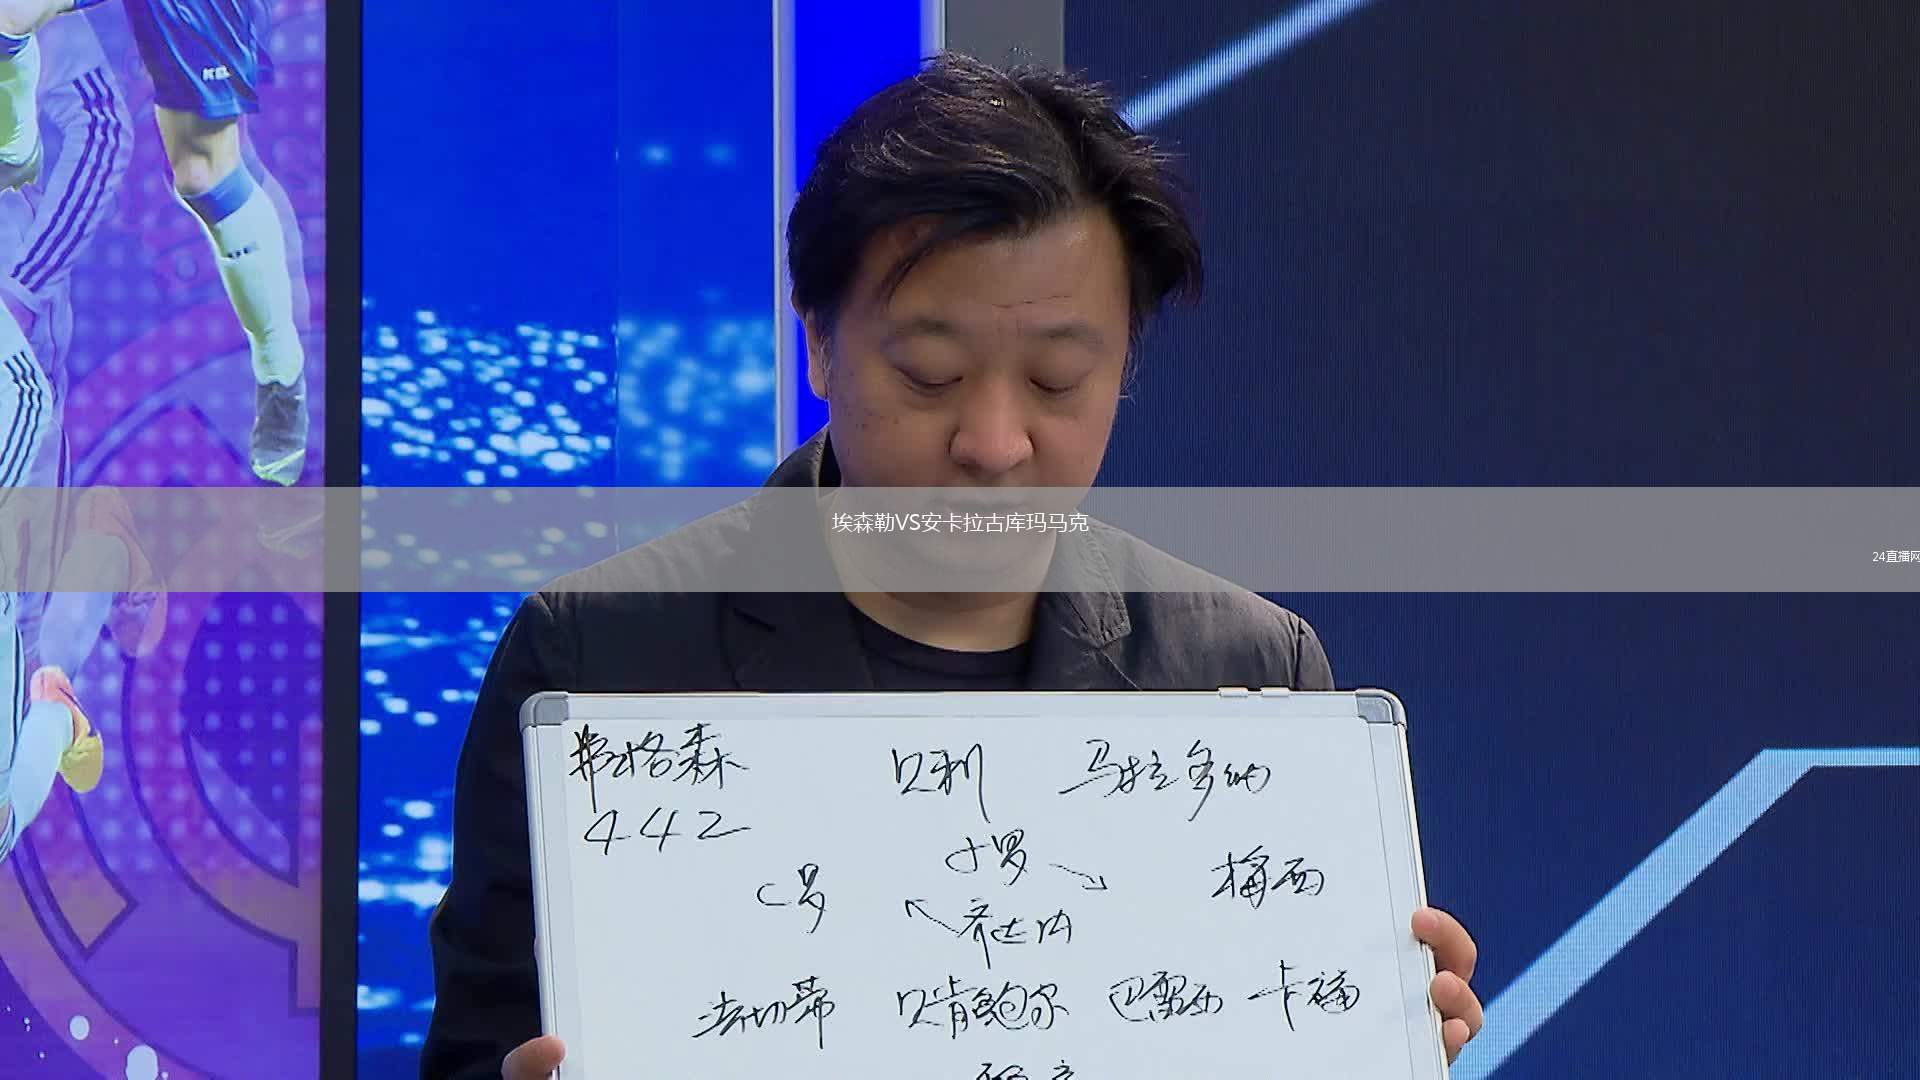 KEL
埃森勒VS安卡拉古库玛马克
24直播网
弗格森 贝利 马拉多纳
442
小罗
C罗 梅西
齐达内
法切蒂 贝肯鲍尔 巴雷西 卡福